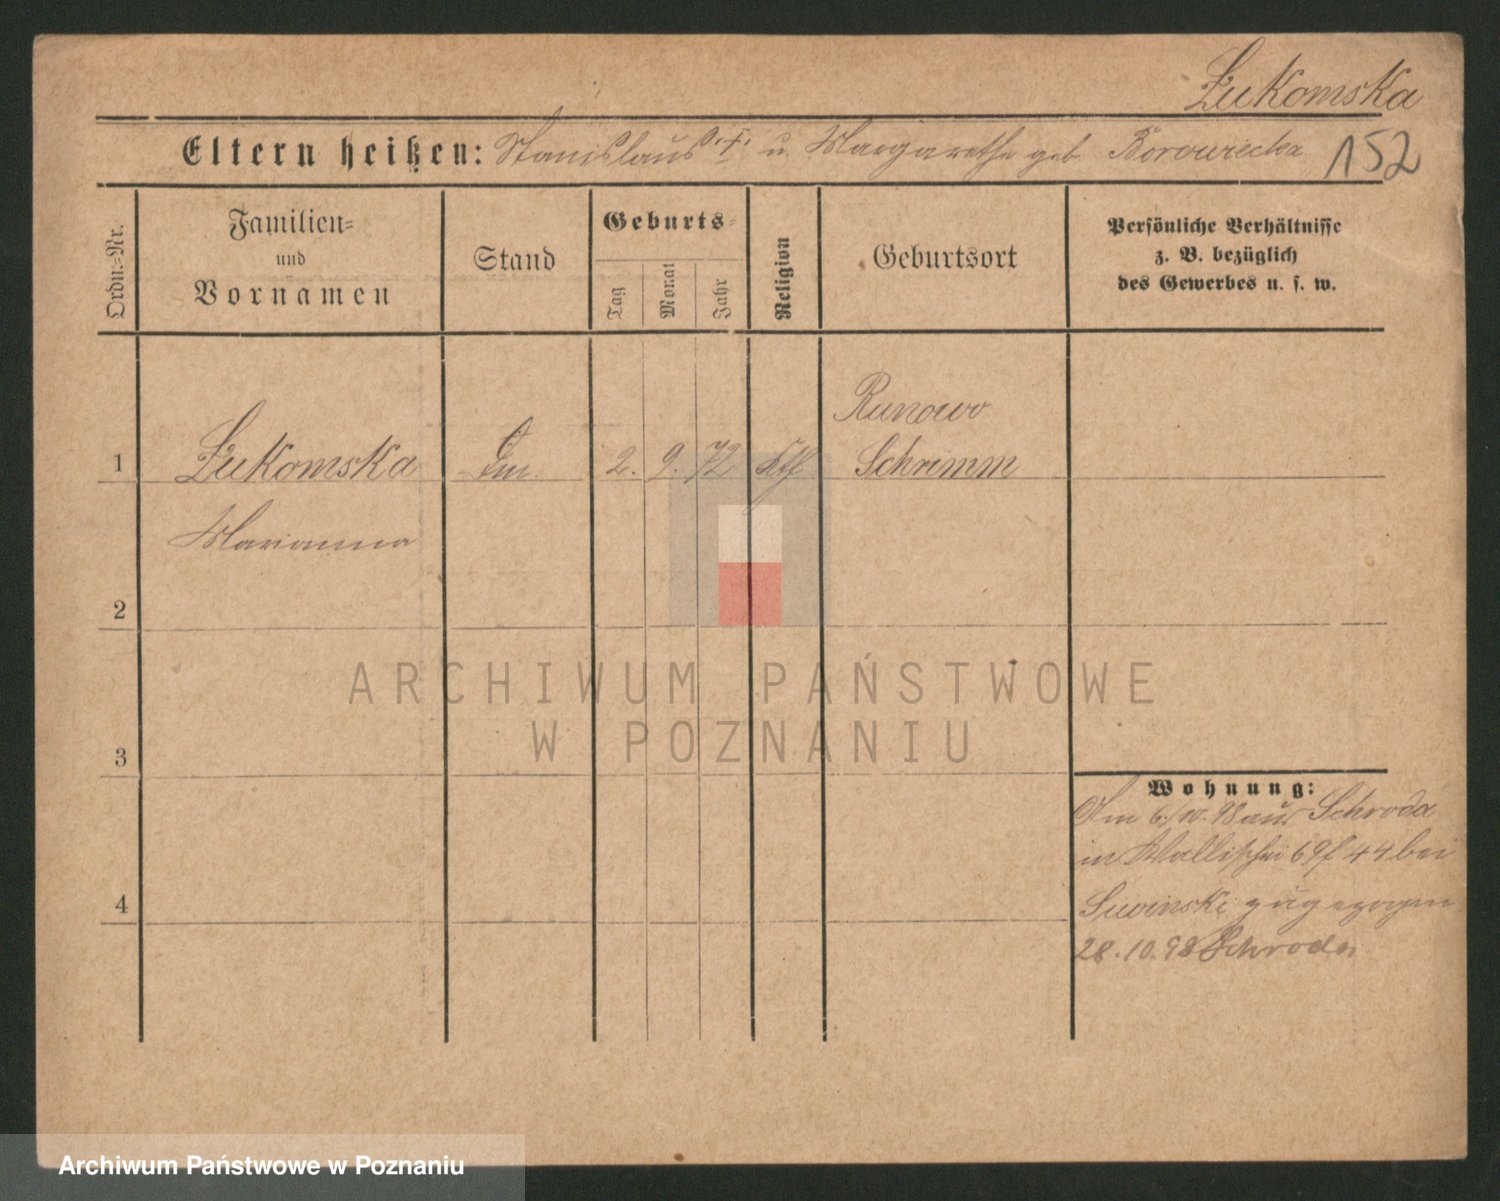 Łukomska
Eltern heißen: Stanislaus "†" u. Margarethe geb. Borowiecka 152
Ordn.-Nr.
Familien-
und
Vornamen
Stand
Geburts-
Tag
Monat
Jahr
Religion
Geburtsort
Persönliche Verhältnisse
z. B. bezüglich
des Gewerbes u. s. w.
Runowo
1 Łukomska 2. 9. 72 kth Schrimm
Marianna
2
ARCHIWUM PAŃSTWOWE
W POZNANIU
3
Wohnung:
Am 6./10. 98 aus Schroda
in Wallischei 69/44 bei
Suwinski zugezogen
4
28.10.98 Schroda
Archiwum Państwowe w Poznaniu